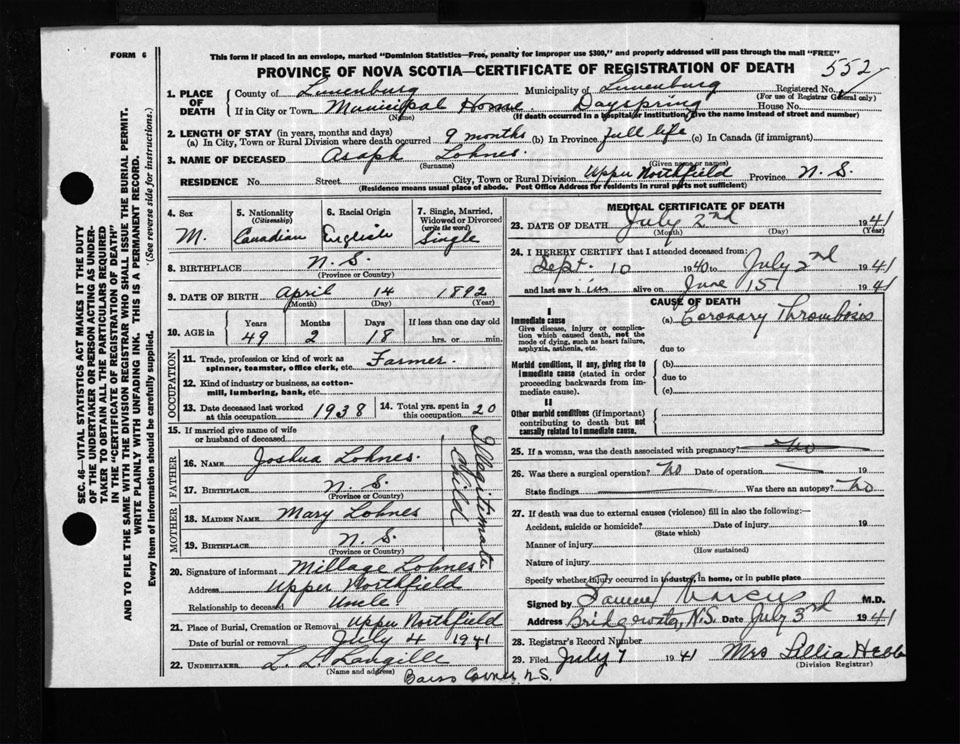 FORM 6
This form if placed in an envelope, marked "Dominion Statistics—Free, penalty for improper use $300," and properly addressed will pass through the mail "FREE"
PROVINCE OF NOVA SCOTIA—CERTIFICATE OF REGISTRATION OF DEATH 552
1. PLACE OF DEATH
County of Lunenburg Municipality of Lunenburg Registered No.
(For use of Registrar General only)
If in City or Town Municipal Home Dayspring House No.
(Name) (If death occurred in a hospital or institution, give the name instead of street and number)
2. LENGTH OF STAY (in years, months and days)
(a) In City, Town or Rural Division where death occurred 9 months (b) In Province full life (c) In Canada (if immigrant)
3. NAME OF DECEASED Asaph Lohnes
(Surname) (Given name or names)
RESIDENCE No. Street City, Town or Rural Division Upper Northfield Province N. S.
(Residence means usual place of abode. Post Office Address for residents in rural parts not sufficient)
SEC. 46—VITAL STATISTICS ACT MAKES IT THE DUTY
OF THE UNDERTAKER OR PERSON ACTING AS UNDER-
TAKER TO OBTAIN ALL THE PARTICULARS REQUIRED
IN THE "CERTIFICATE OF REGISTRATION OF DEATH"
AND TO FILE THE SAME WITH THE DIVISION REGISTRAR WHO SHALL ISSUE THE BURIAL PERMIT.
WRITE PLAINLY WITH UNFADING INK. THIS IS A PERMANENT RECORD.
Every item of information should be carefully supplied. (See reverse side for instructions.)
4. Sex
M.
5. Nationality
(Citizenship)
Canadian
6. Racial Origin
English
7. Single, Married,
Widowed or Divorced
(write the word)
Single
8. BIRTHPLACE N. S.
(Province or Country)
9. DATE OF BIRTH April 14 1892
(Month) (Day) (Year)
10. AGE in
Years Months Days If less than one day old
49 2 18 hrs. or min.
OCCUPATION
11. Trade, profession or kind of work as
spinner, teamster, office clerk, etc. Farmer.
12. Kind of industry or business, as cotton-
mill, lumbering, bank, etc.
13. Date deceased last worked
at this occupation 1938
14. Total yrs. spent in
this occupation 20
15. If married give name of wife
or husband of deceased
FATHER
16. NAME Joshua Lohnes.
17. BIRTHPLACE N. S.
(Province or Country)
MOTHER
18. MAIDEN NAME Mary Lohnes
19. BIRTHPLACE N. S.
(Province or Country)
Illagitimate
Child
20. Signature of informant Millage Lohnes
Address Upper Northfield
Relationship to deceased Uncle
21. Place of Burial, Cremation or Removal Upper Northfield
Date of burial or removal July 4 1941
22. UNDERTAKER L. L. Langille
(Name and address)
N.S.
MEDICAL CERTIFICATE OF DEATH
23. DATE OF DEATH July 2nd 1941
(Month) (Day) (Year)
24. I HEREBY CERTIFY that I attended deceased from:
Sept. 10 1940 to July 2nd 1941
and last saw h im alive on June 15 1941
CAUSE OF DEATH
I
Immediate cause
Give disease, injury or complica-
tion which caused death, not the
mode of dying, such as heart failure,
asphyxia, asthenia, etc.
(a) Coronary Thrombosis
due to
Morbid conditions, if any, giving rise to
immediate cause (stated in order
proceeding backwards from im-
mediate cause).
(b)
due to
(c)
II
Other morbid conditions (if important)
contributing to death but not
causally related to immediate cause.
25. If a woman, was the death associated with pregnancy? No
26. Was there a surgical operation? No Date of operation 19
State findings Was there an autopsy? No
27. If death was due to external causes (violence) fill in also the following:—
Accident, suicide or homicide? Date of injury 19
(State which)
Manner of injury
(How sustained)
Nature of injury
Specify whether injury occurred in industry, in home, or in public place
Signed by Samuel Marcus M.D.
Address Bridgewater, N.S. Date July 3rd 1941
28. Registrar's Record Number
29. Filed July 7 1941 Mrs Lillia Hebb
(Division Registrar)